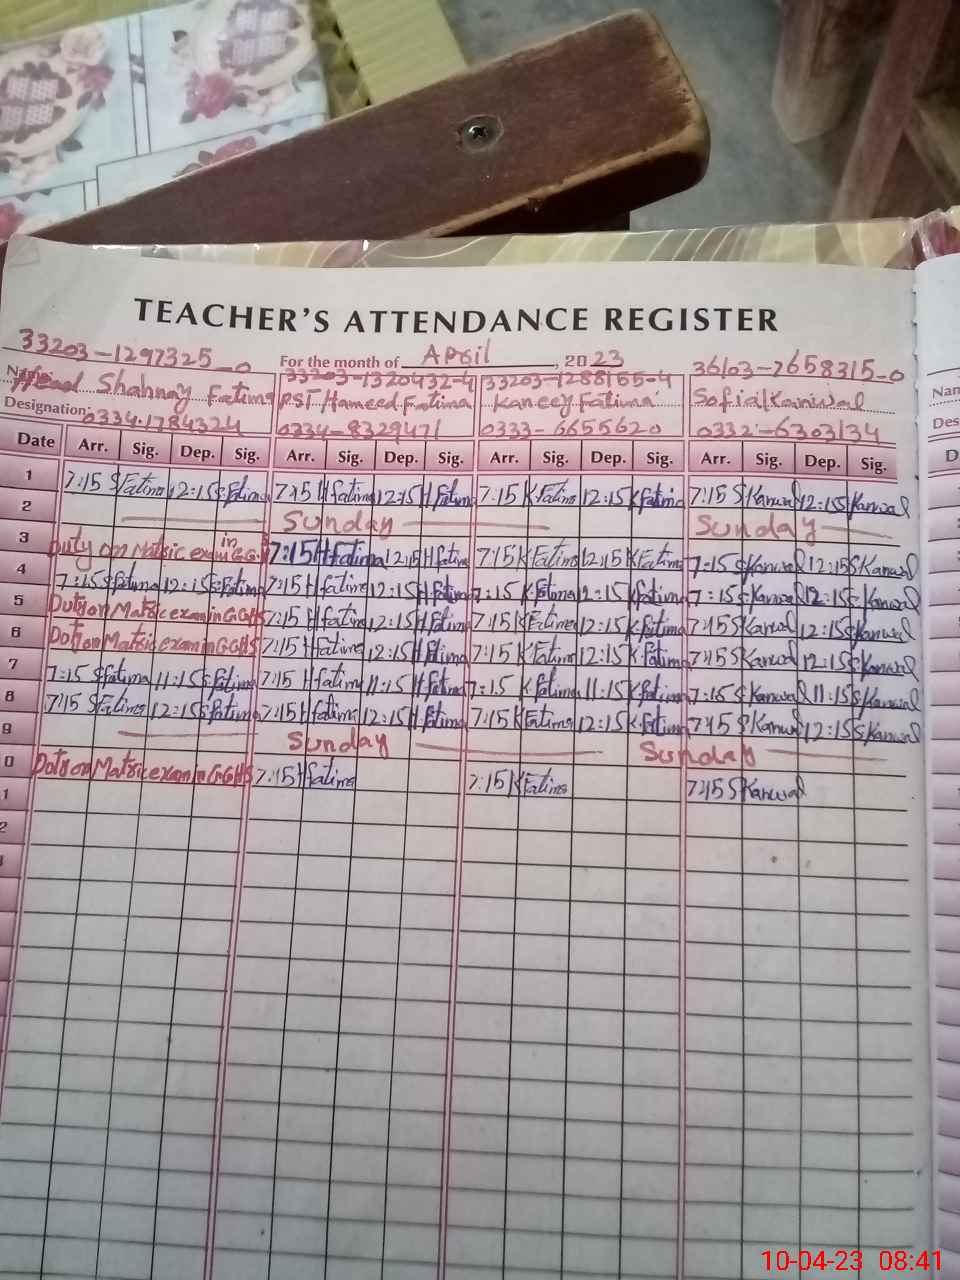 TEACHER'S ATTENDANCE REGISTER
33203-1297325-0 For the month of April, 2023 36103-7658315-0
Name: Head Shahnaz Fatima 33203-1320432-4 33203-1288155-4 Sofia Kanwal
Designation: 0334-1784324 PST Hameed Fatima Kaneez Fatima 0332-6303134
0334-8329471 0333-6655620
Date Arr. Sig. Dep. Sig. Arr. Sig. Dep. Sig. Arr. Sig. Dep. Sig. Arr. Sig. Dep. Sig.
1 7:15 SFatima 12:15 SFatima 7:15 HFatima 12:15 HFatima 7:15 KFatima 12:15 KFatima 7:15 SKanwal 12:15 SKanwal
2 Sunday Sunday
3 Duty on Matric exam in 7:15 HFatima 12:15 HFatima 7:15 KFatima 12:15 KFatima 7:15 SKanwal 12:15 SKanwal
4 7:15 SFatima 12:15 SFatima 7:15 HFatima 12:15 HFatima 7:15 KFatima 12:15 KFatima 7:15 SKanwal 12:15 SKanwal
5 Duty on Matric exam in GGHS 7:15 HFatima 12:15 HFatima 7:15 KFatima 12:15 KFatima 7:15 SKanwal 12:15 SKanwal
6 Doty on Matric exam in GGHS 7:15 HFatima 12:15 HFatima 7:15 KFatima 12:15 KFatima 7:15 SKanwal 12:15 SKanwal
7 7:15 SFatima 11:15 SFatima 7:15 HFatima 11:15 HFatima 7:15 KFatima 11:15 KFatima 7:15 SKanwal 11:15 SKanwal
8 7:15 SFatima 12:15 SFatima 7:15 HFatima 12:15 HFatima 7:15 KFatima 12:15 KFatima 7:15 SKanwal 12:15 SKanwal
9 Sunday Sunday
0 Doty on Matric exam in GGHS 7:15 HFatima 7:15 KFatima 7:15 SKanwal
1
2
Nam
Des
D
10-04-23 08:41